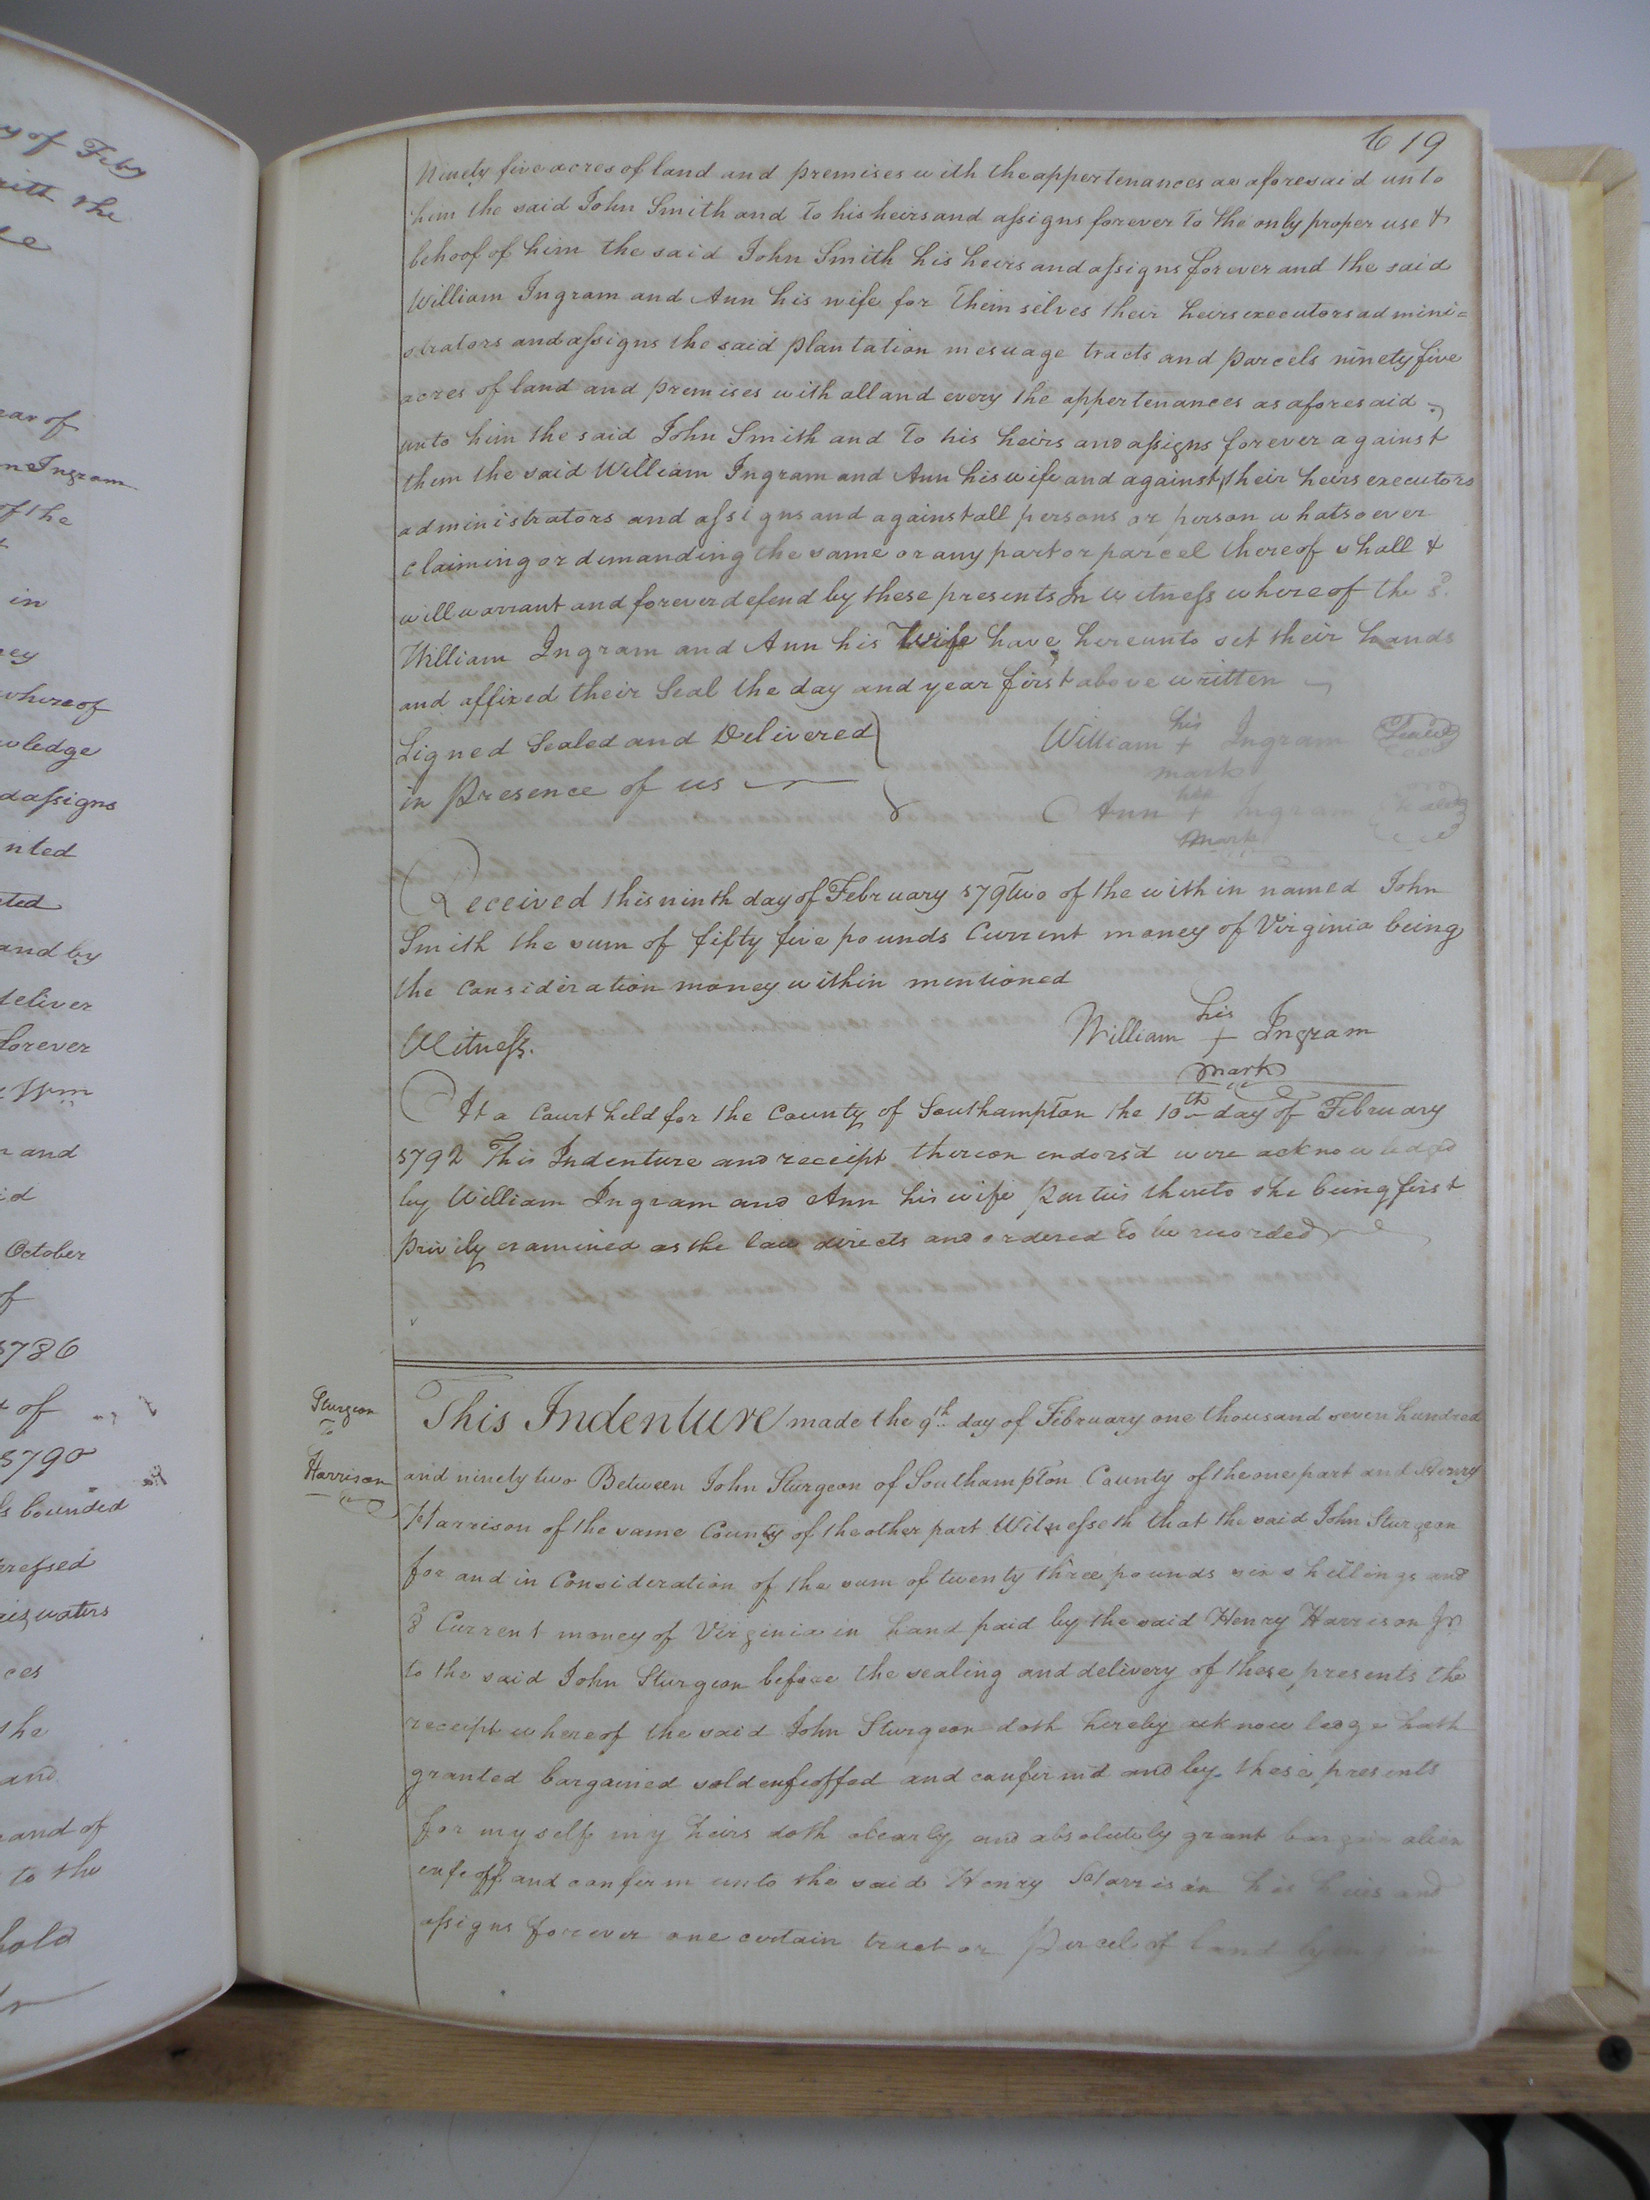 y of Feby
with the
ear of
n Ingram
of the
in
ey
whereof
wledge
d assigns
nted
ted
and by
deliver
forever
Wm
and
id
October
of
1786
t of
1790
s bounded
pressed
waters
ces
the
and
and of
to the
hold
619
Ninety five acres of land and premises with the appertenances as aforesaid unto
him the said John Smith and to his heirs and assigns forever To the only proper use &
behoof of him the said John Smith his heirs and assigns forever and the said
William Ingram and Ann his wife for Themselves their heirs executors admini=
strators and assigns the said plantation mesuage tracts and parcels ninety five
acres of land and premises with all and every the appertenances as aforesaid
unto him the said John Smith and To his heirs and assigns forever against
them the said William Ingram and Ann his wife and against their heirs executors
administrators and assigns and against all persons or person whatsoever
claiming or demanding the same or any part or parcel thereof shall &
will warrant and forever defend by these presents In witness whereof the sd.
William Ingram and Ann his wife have hereunto set their hands
and affixed their Seal the day and year first above written
Signed Sealed and Delivered
in Presence of us
his
William + Ingram Seal
mark
her
Ann + Ingram Seal
mark
Received this ninth day of February 179two of the within named John
Smith the sum of fifty five pounds Current money of Virginia being
the consideration money within mentioned
Witness.
his
William + Ingram
mark
At a Court held for the County of Southampton the 10th day of February
1792 This Indenture and receipt thereon endorsd were acknowledged
by William Ingram and Ann his wife Parties thereto she being first
privily examined as the law directs and ordered to be recorded
Sturgeon
To
Harrison
This Indenture made the 9th day of February one thousand seven hundred
and ninety two Between John Sturgeon of Southampton County of the one part and Henry
Harrison of the same County of the other part Witnesseth that the said John Sturgeon
for and in Consideration of the sum of twenty three pounds six shillings and
8d Current money of Virginia in hand paid by the said Henry Harrison Jr
to the said John Sturgeon before the sealing and delivery of these presents the
receipt whereof the said John Sturgeon doth hereby acknowledge hath
granted bargained sold enfeoffed and confirmd and by these presents
for myself my heirs doth clearly and absolutely grant bargain alien
enfeoff and confirm unto the said Henry Harrison his heirs and
assigns forever one certain tract or Parcel of land lying in